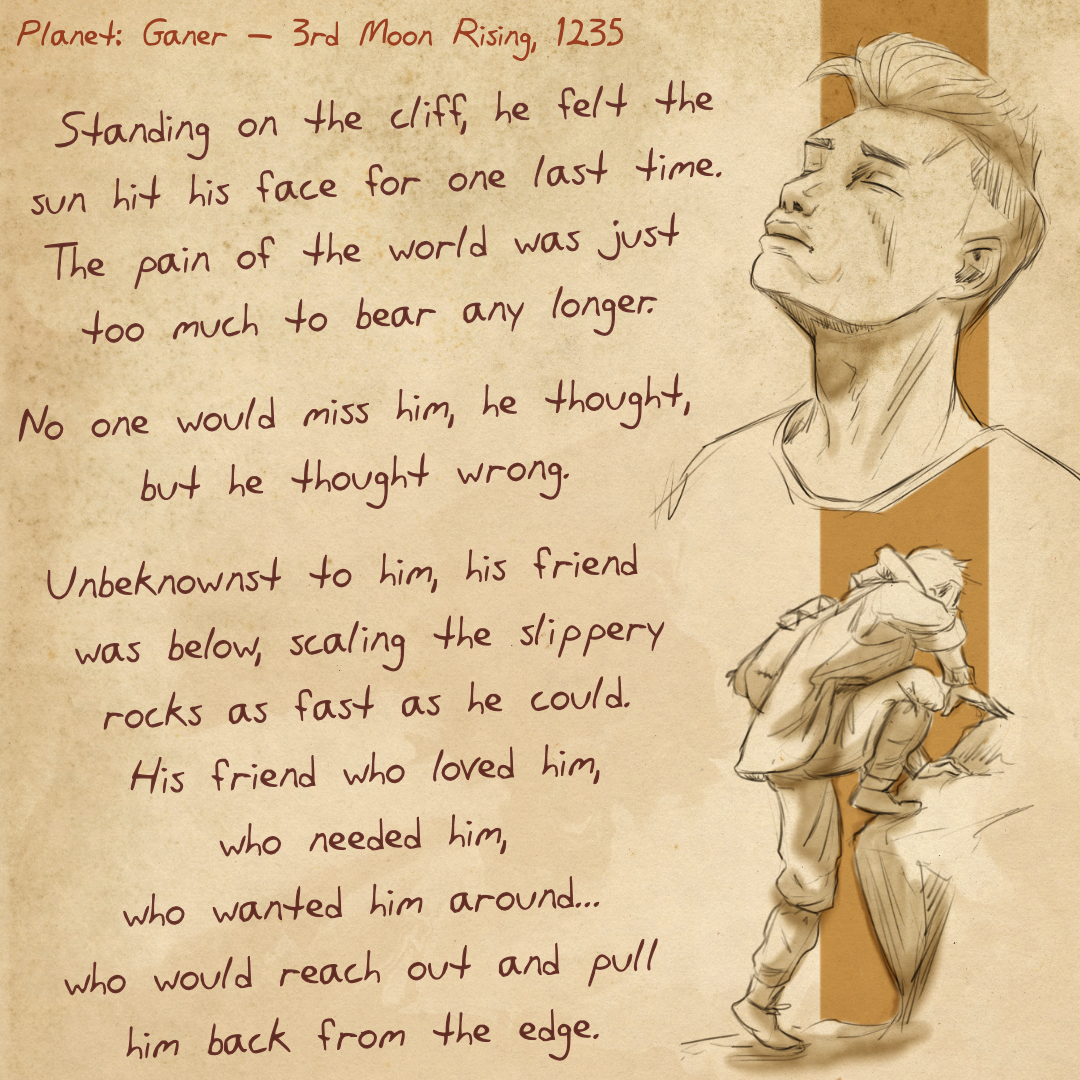 Planet: Ganer – 3rd Moon Rising, 1235
Standing on the cliff, he felt the
sun hit his face for one last time.
The pain of the world was just
too much to bear any longer.
No one would miss him, he thought,
but he thought wrong.
Unbeknownst to him, his friend
was below, scaling the slippery
rocks as fast as he could.
His friend who loved him,
who needed him,
who wanted him around...
who would reach out and pull
him back from the edge.